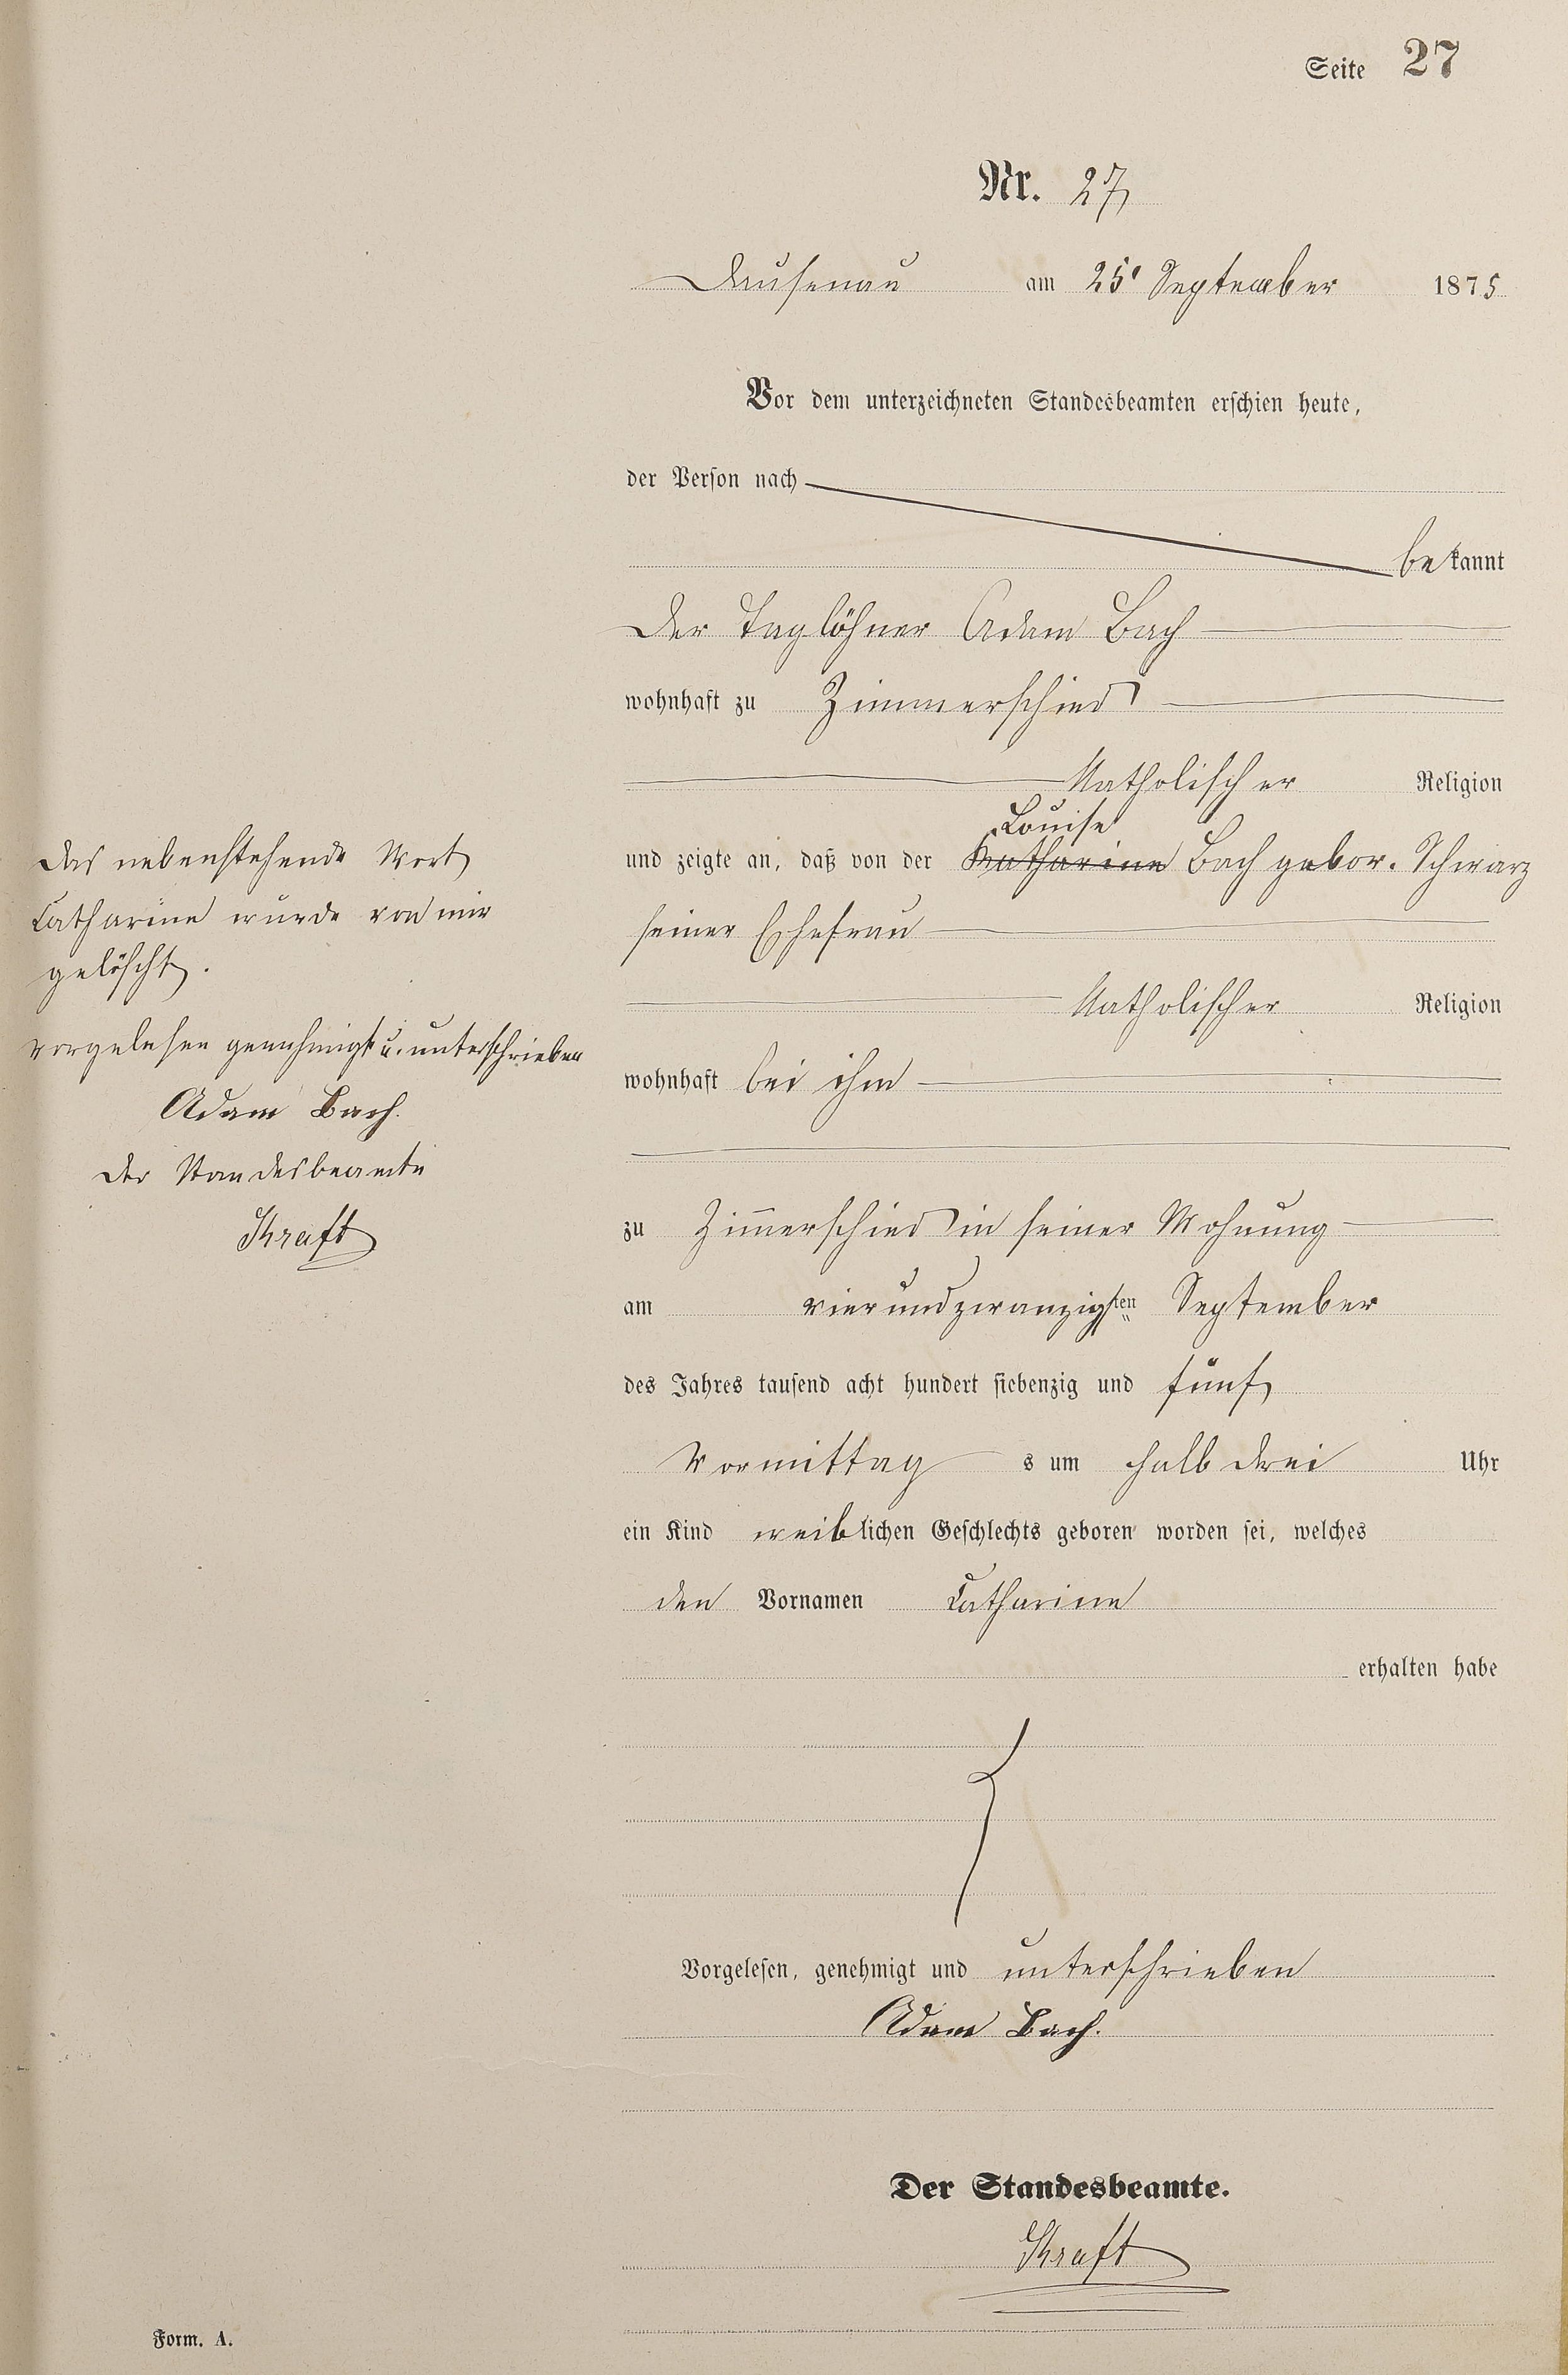 Seite 27
Nr. 27
Dausenau am 25t September 1875
Vor dem unterzeichneten Standesbeamten erschien heute,
der Person nach
bekannt
der Taglöhner Adam Bach
wohnhaft zu Zimmerschied
Katholischer Religion
Louise
und zeigte an, daß von der Katharina Bach gebor. Schwarz
seiner Ehefrau
Katholischer Religion
wohnhaft bei ihm
zu Zim̄erschied in seiner Wohnung
am vierundzwanzigsten September
des Jahres tausend acht hundert siebenzig und fünf
Vormittags um halb drei Uhr
ein Kind weiblichen Geschlechts geboren worden sei, welches
den Vornamen Catharine
erhalten habe
Vorgelesen, genehmigt und unterschrieben
Adam Bach.
Der Standesbeamte.
Kraft
Das nebenstehende Wort
Catharine wurde von mir
gelöscht.
vorgelesen genehmigt u. unterschrieben
Adam Bach.
Der Standesbeamte
Kraft
Form. A.